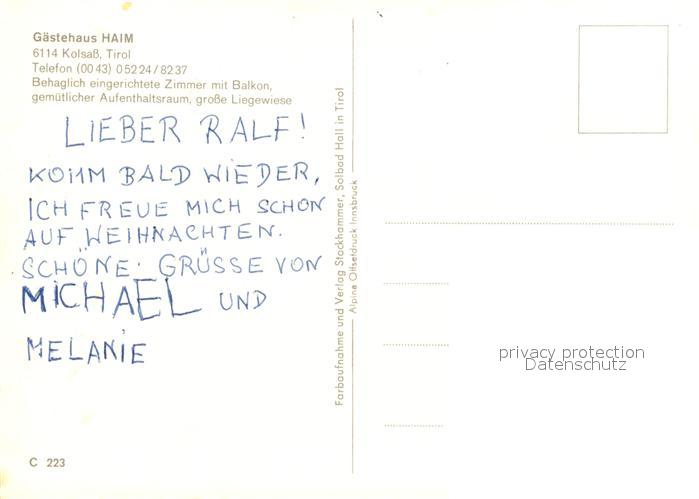 Gästehaus HAIM
6114 Kolsaß, Tirol
Telefon (00 43) 0 52 24 / 82 37
Behaglich eingerichtete Zimmer mit Balkon,
gemütlicher Aufenthaltsraum, große Liegewiese
LIEBER RALF!
KOMM BALD WIEDER,
ICH FREUE MICH SCHON
AUF WEIHNACHTEN.
SCHÖNE GRÜSSE VON
MICHAEL UND
MELANIE
C 223
Farbaufnahme und Verlag Stockhammer, Solbad Hall in Tirol
Alpina Offsetdruck Innsbruck
privacy protection
Datenschutz